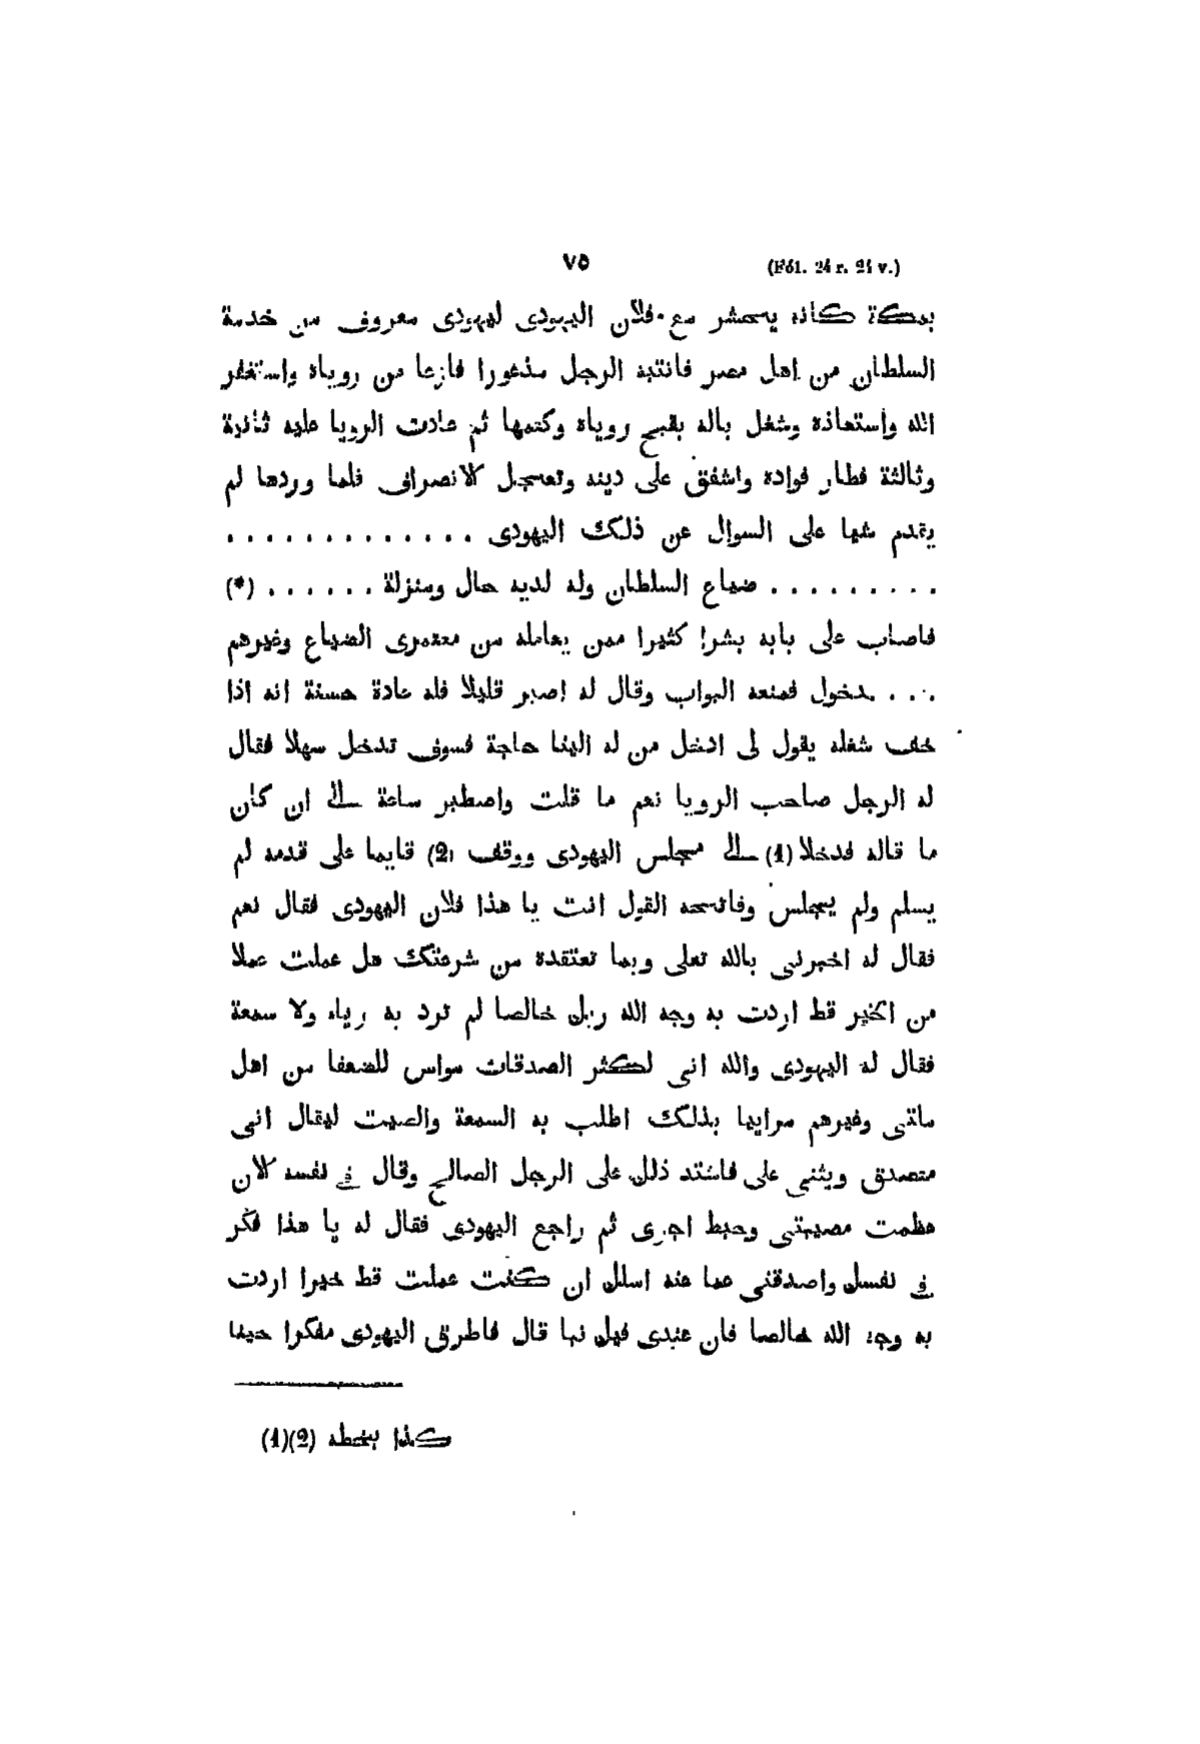 ٧٥ (Fól. 24 r. 24 v.)
بمكة كانه يحشر مع فلان اليهودى ليهودى معروف من خدمة
السلطان من اهل مصر فانتبه الرجل مذعورا فازعا من روياه واستغفر
الله واستعاذه وشغل باله بقبح روياه وكتمها ثم عادت الرويا عليه ثانية
وثالثة فطار فواده واشفق على دينه وتعجل الانصراف فلما وردها لم
يقدم شيا على السوال عن ذلك اليهودى . . . . . . . . . . . . .
. . . . . . . . . ضياع السلطان وله لديه حال ومنزلة . . . . . . (*)
فاصاب على بابه بشرا كثيرا ممن يعامله من معمرى الضياع وغيرهم
. . . . بدخول فمنعه البواب وقال له اصبر قليلا فله عادة حسنة انه اذا
خف شغله يقول لى ادخل من له الينا حاجة فسوف تدخل سهلا فقال
له الرجل صاحب الرويا نعم ما قلت واصطبر ساعة الى ان كان
ما قاله فدخلا (1) الى مجلس اليهودى ووقف (2) قايما على قدمه لم
يسلم ولم يجلس وفاتحه القول انت يا هذا فلان اليهودى فقال نعم
فقال له اخبرنى بالله تعلى وبما تعتقده من شرعتك هل عملت عملا
من الخير قط اردت به وجه الله ربك خالصا لم ترد به رياء ولا سمعة
فقال له اليهودى والله انى لكثر الصدقات مواس للضعفا من اهل
ملتى وغيرهم مراييا بذلك اطلب به السمعة والصيت ليقال انى
متصدق ويثنى على فاشتد ذلك على الرجل الصالح وقال فى نفسه الان
عظمت مصيبتى وحبط اجرى ثم راجع اليهودى فقال له يا هذا فكر
فى نفسك واصدقنى عما عنه اسلك ان كنت عملت قط خيرا اردت
به وجه الله خالصا فان عندى فيك نبا قال فاطرق اليهودى مفكرا حينا
(1)(2) كذا بخطه